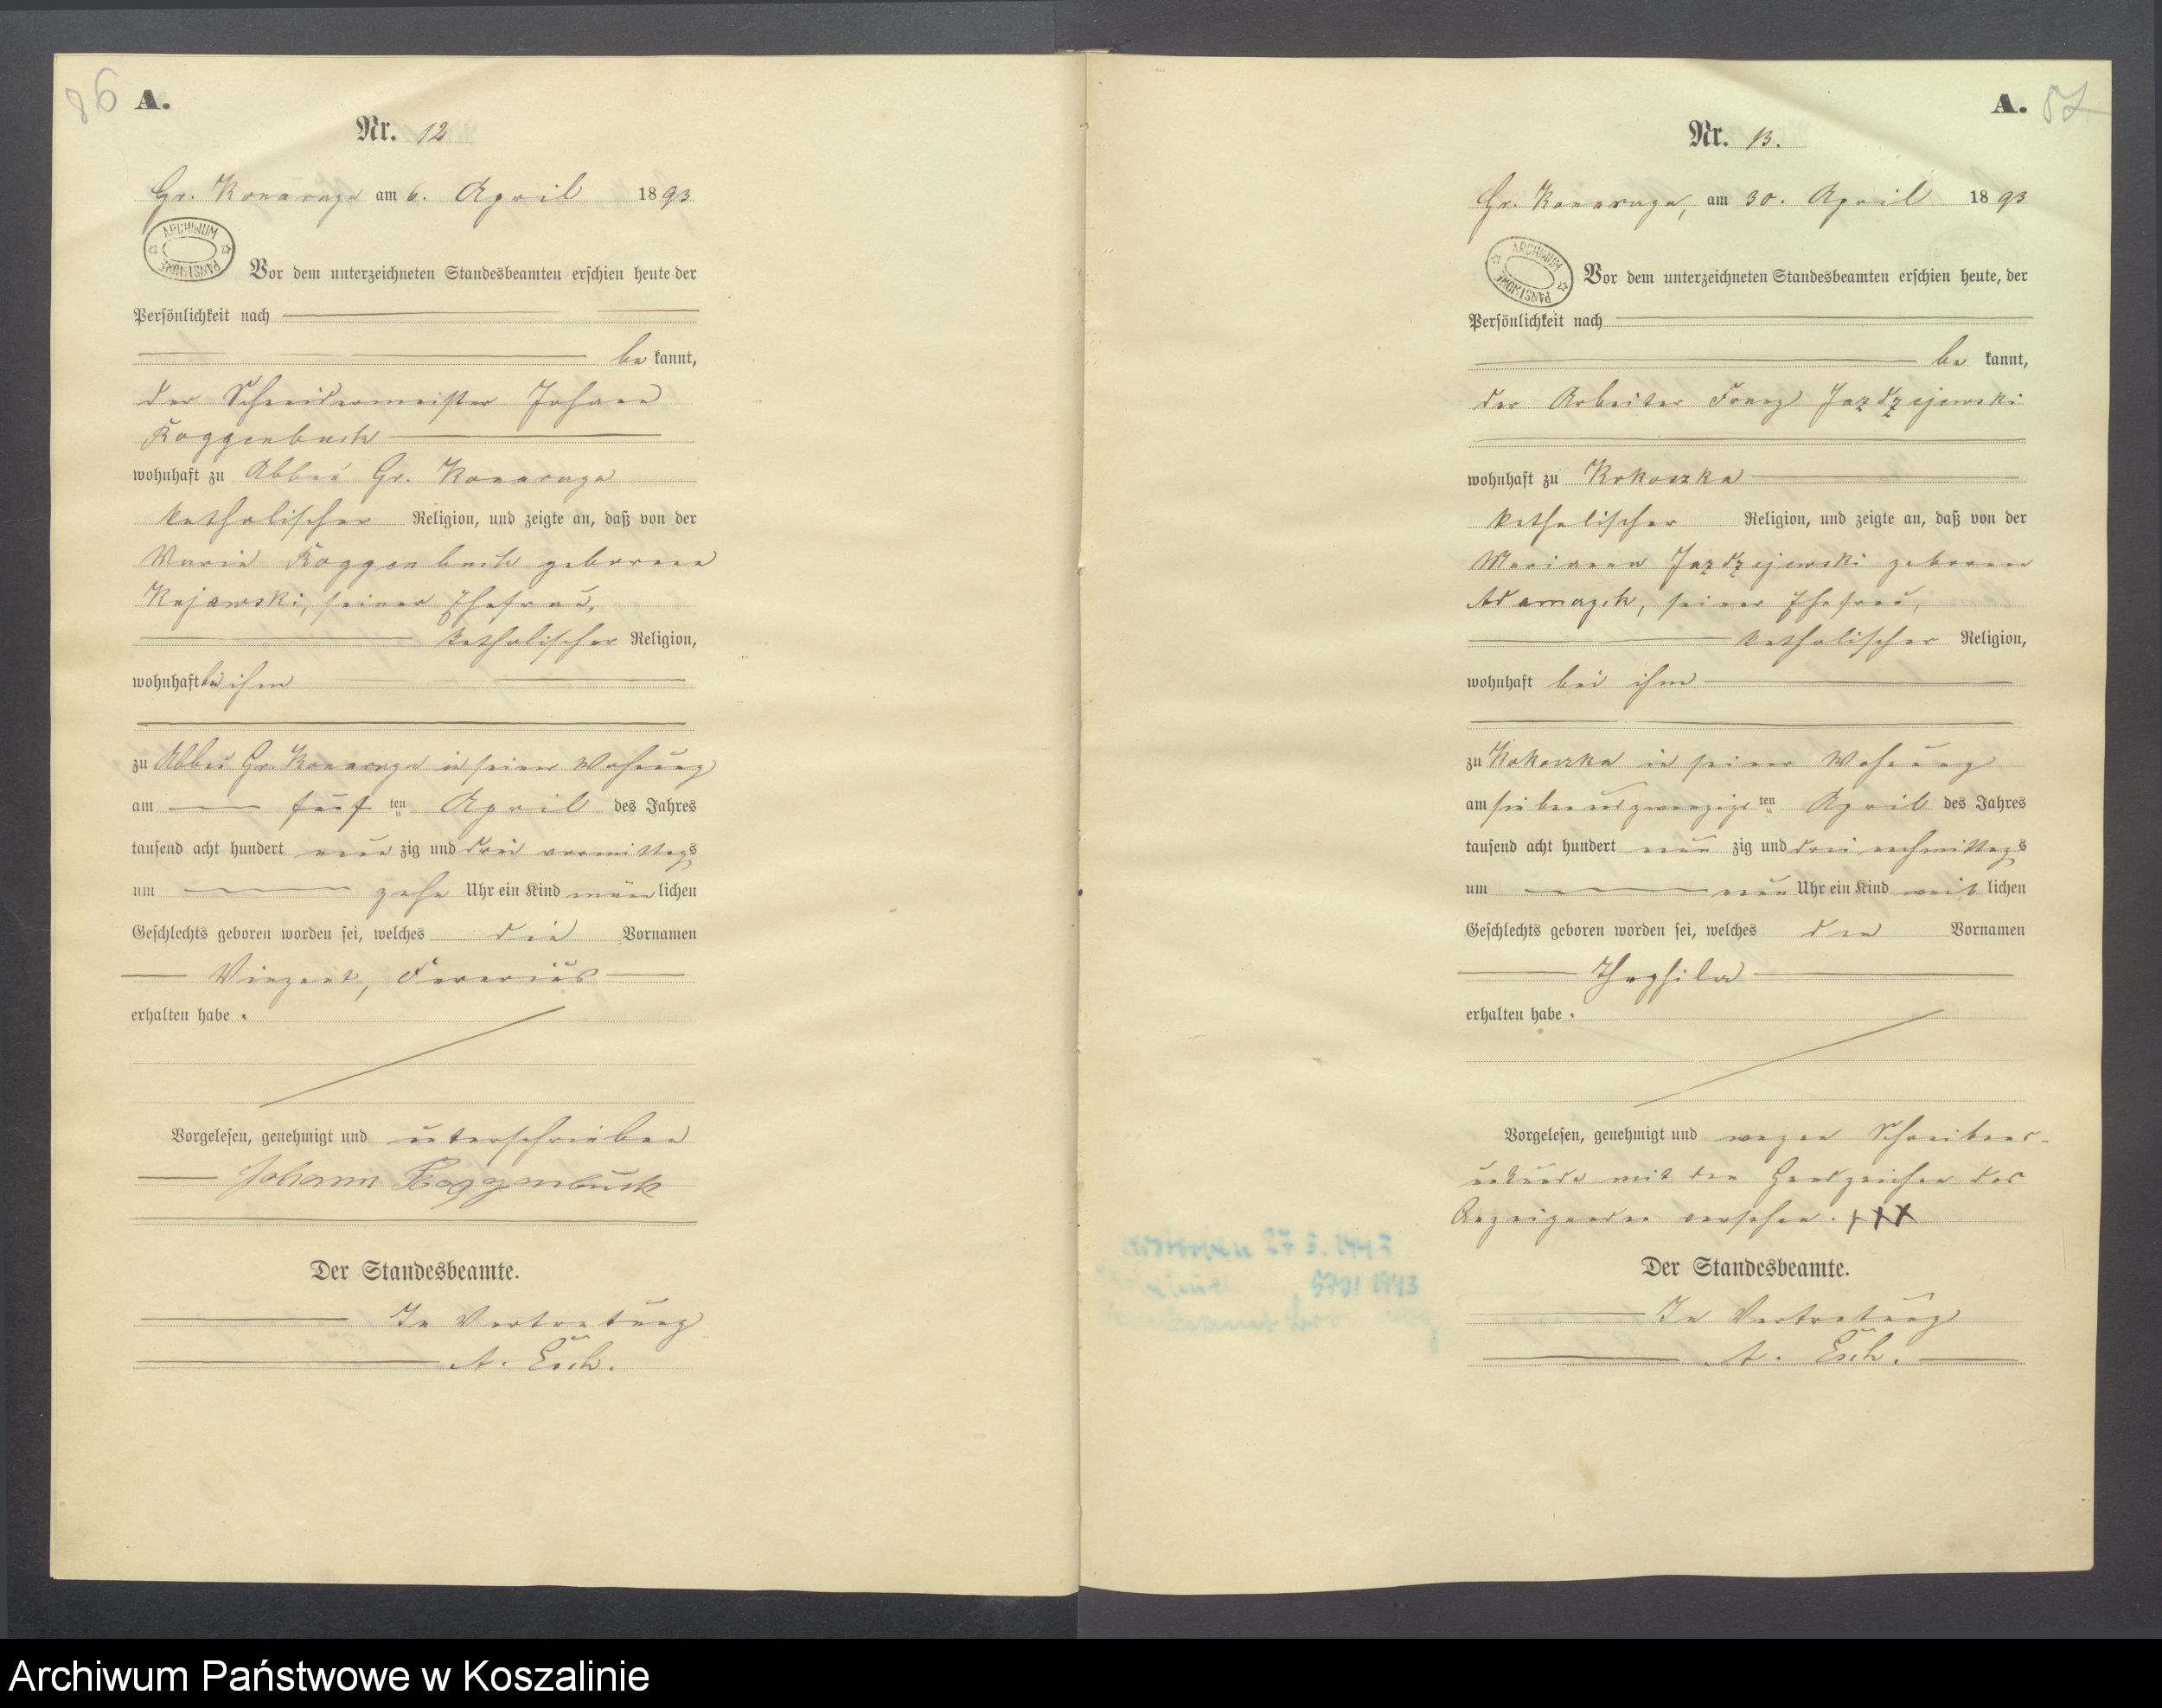 86 A.
Nr. 12
Gr. Konarczyn am 6. April 1893
ARCHIWUM PAŃSTWOWE
Vor dem unterzeichneten Standesbeamten erschien heute der
Persönlichkeit nach
be kannt,
der Schneidermeister Johann
Roggenbuck
wohnhaft zu Abbau Gr. Konarczyn
katholischer Religion, und zeigte an, daß von der
Maria Roggenbuck geborene
Kujawski, seiner Ehefrau,
katholischer Religion,
wohnhaft bei ihm
zu Abbau Gr. Konarczyn in seiner Wohnung
am fünf ten April des Jahres
tausend acht hundert neun zig und drei vormittags
um zehn Uhr ein Kind männ lichen
Geschlechts geboren worden sei, welches die Vornamen
Vinzent, Fererius
erhalten habe.
Vorgelesen, genehmigt und unterschrieben
Johann Roggenbuck
Der Standesbeamte.
In Vertretung
A. Esch.
A. 87
Nr. 13.
Gr. Konarczyn, am 30. April 1893
ARCHIWUM PAŃSTWOWE
Vor dem unterzeichneten Standesbeamten erschien heute, der
Persönlichkeit nach
be kannt,
der Arbeiter Franz Jazdzejewski
wohnhaft zu Kokoszka
katholischer Religion, und zeigte an, daß von der
Marianna Jazdzejewski geborene
Adamczik, seiner Ehefrau,
katholischer Religion,
wohnhaft bei ihm
zu Kokoszka in seiner Wohnung
am siebenundzwanzigs ten April des Jahres
tausend acht hundert neun zig und drei nachmittags
um neun Uhr ein Kind weib lichen
Geschlechts geboren worden sei, welches den Vornamen
Theophila
erhalten habe.
Vorgelesen, genehmigt und wegen Schreibens-
unkunde mit den Handzeichen des
Anzeigenden versehen. +++
27 3. 1947
5701 1993
Der Standesbeamte.
In Vertretung
A. Esch.
Archiwum Państwowe w Koszalinie